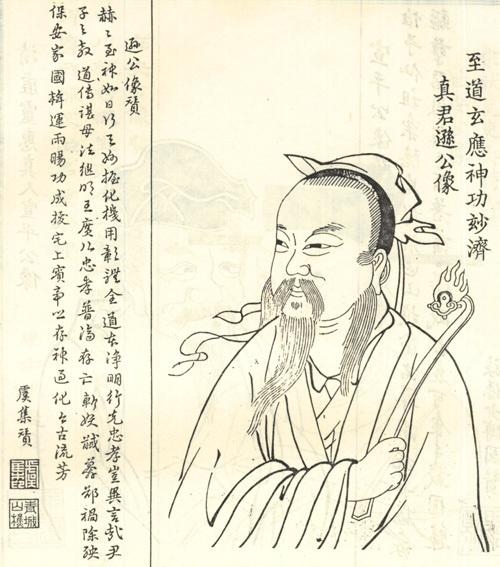 至道玄應神功妙濟
真君遜公像
遜公像贊
赫〻至神如日行天握化機用彰證全道本淨明行先忠孝豈異言哉
子之教道傳諶母法繼明王度以忠孝普濟存亡斬妖馘禍除殃
保安家國斡運雨暘功成拔宅上賓帝所存神過化今古流芳
虞集贊
青城山樵